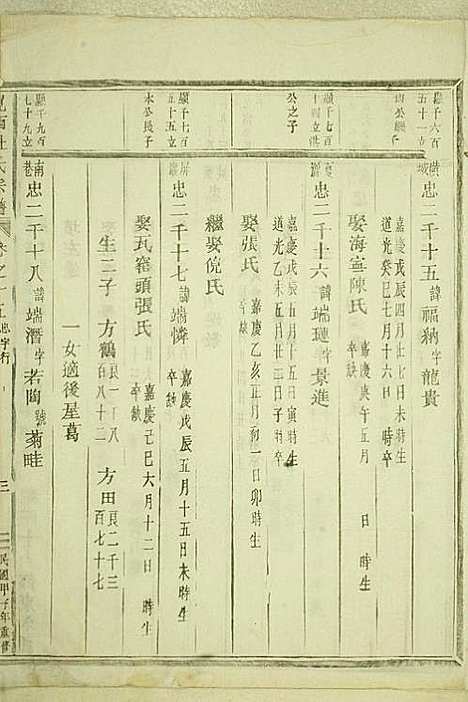 顯千六百
五十一立
黃
城
忠二千十五諱福納字龍貴
嘉慶戊辰四月廿七日未時生
道光癸巳七月十六日 時卒
娶海寧陳氏
嘉慶庚午五月 日 時生
卒缺
顯千七百
十四立
公之子
忠二千十六諱端璉字景進
嘉慶戊辰五月十五日寅時生
道光乙未五月廿六日子時卒
娶張氏
嘉慶乙亥五月初一日卯時生
繼娶倪氏
顯千七百
五十五立
本公長子
忠二千十七諱端憐
嘉慶戊辰五月十五日未時生
卒缺
娶瓦窑頭張氏
嘉慶己巳六月十二日 時生
卒缺
生二子 方鶴 良一千八百八十二 方田 良二千三百七十七
一女適後屋葛
顯千九百
七十九立
南
巷
忠二千十八諱端潛字若陶號菊畦
宗譜
卷之十五忠字行
三
民國甲子年重修